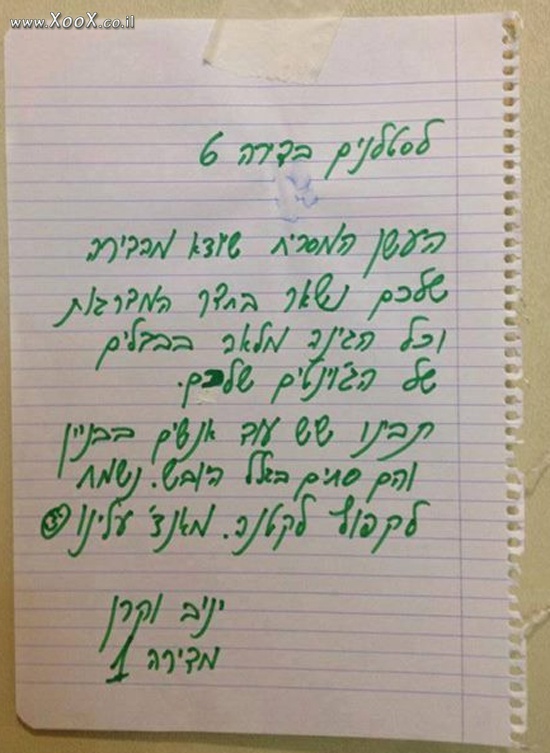 www.XooX.co.il
לסטלנים בדירה 6
העשן המסריח שיוצא מהדירה
שלכם נשאר בחדר המדרגות
וכל הגינה מלאה בבדלים
של הג'וינטים שלכם.
תבינו שיש עוד אנשים בבניין
והם סתומים בגלל היובש. נשמח
לקפוץ לקטנה. מאנצ' עלינו
יניב וקרן
מדירה 1